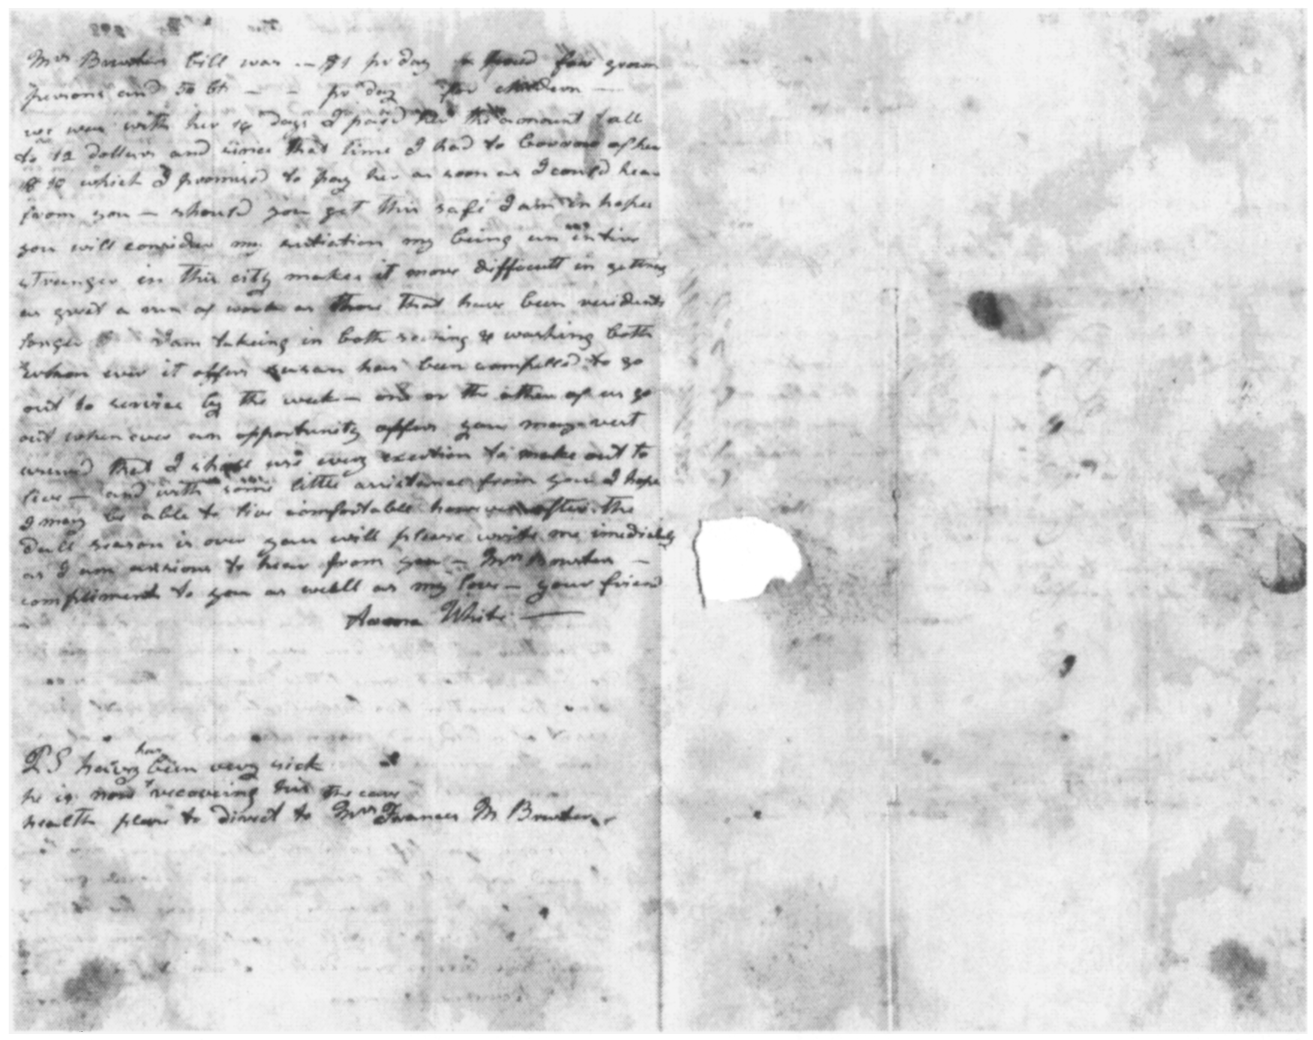 Mrs Bowsters bill was — $1 pr day a head for grown
persons and 50 ct — — pr day for children —
we was with her 14 days I paid her the amount all
to 12 dollers and since that time I had to borrow of her
$10 which I promised to pay her as soon as I could hear
from you — should you get this safe I am in hopes
you will consider my sutiation my being an intire
stranger in this city makes it more difficult in getting
as great a run of work as those that have been residents
longer I am takeing in both sewing & washing both
when ever it offers Susan has been compelled to go
out to service by the week — one or the other of us go
out when ever an opportunity offers you may rest
ashured that I shall use every exertion to make out to
live — and with some little assistance from you I hope
I may be able to live comfortable however after the
dull season is over you will please write me imediately
as I am anxious to hear from you — Mrs Bowsters —
compliments to you as well as my love — your friend
Avenia White —
PS has been very sick
he is now recovering his
health please to direct to Mrs Frances M Bowster